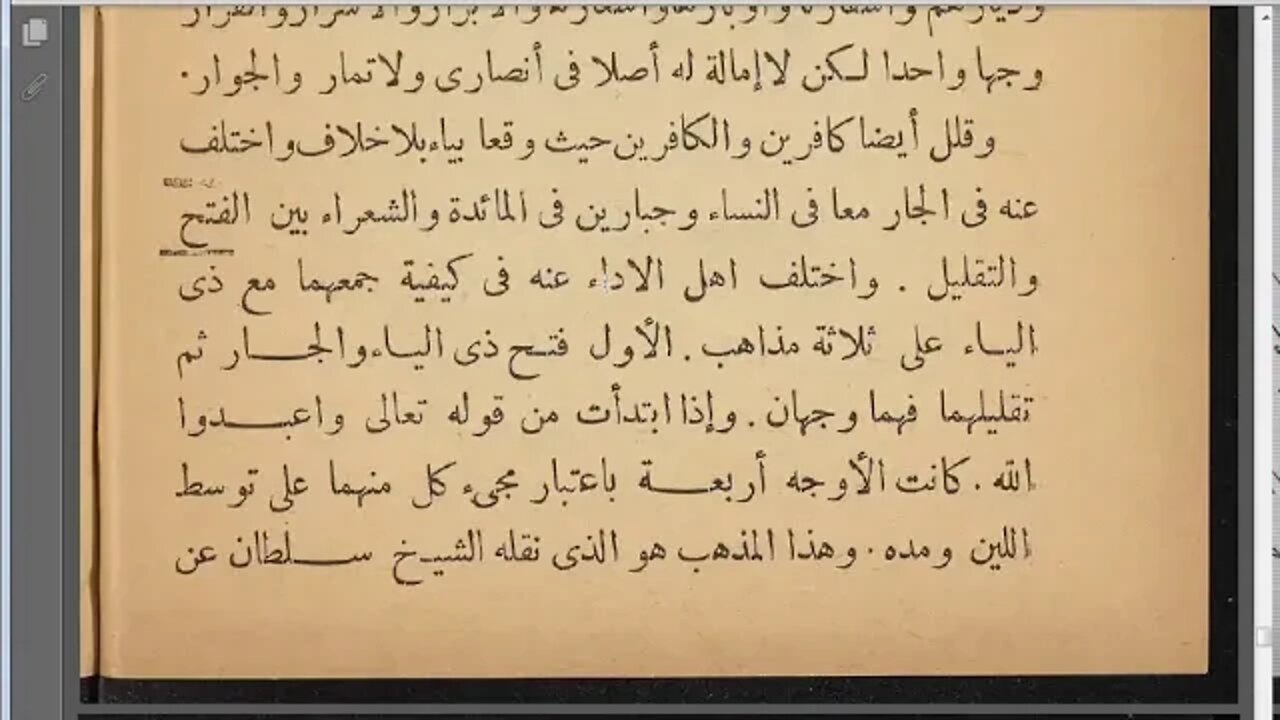 وجها واحدا لكن لا إمالة له أصلا فى أنصارى ولا تمار والجوار.
وقلل أيضا كافرين والكافرين حيث وقعا بياء بلا خلاف واختلف
عنه فى الجار معا فى النساء وجبارين فى المائدة والشعراء بين الفتح
والتقليل . واختلف اهل الاداء عنه فى كيفية جمعهما مع ذى
الياء على ثلاثة مذاهب . الأول فتح ذى الياء والجار ثم
تقليلهما فهما وجهان . وإذا ابتدأت من قوله تعالى واعبدوا
الله . كانت الأوجه أربعة باعتبار مجىء كل منهما على توسط
اللين ومده . وهذا المذهب هو الذى نقله الشيخ سلطان عن